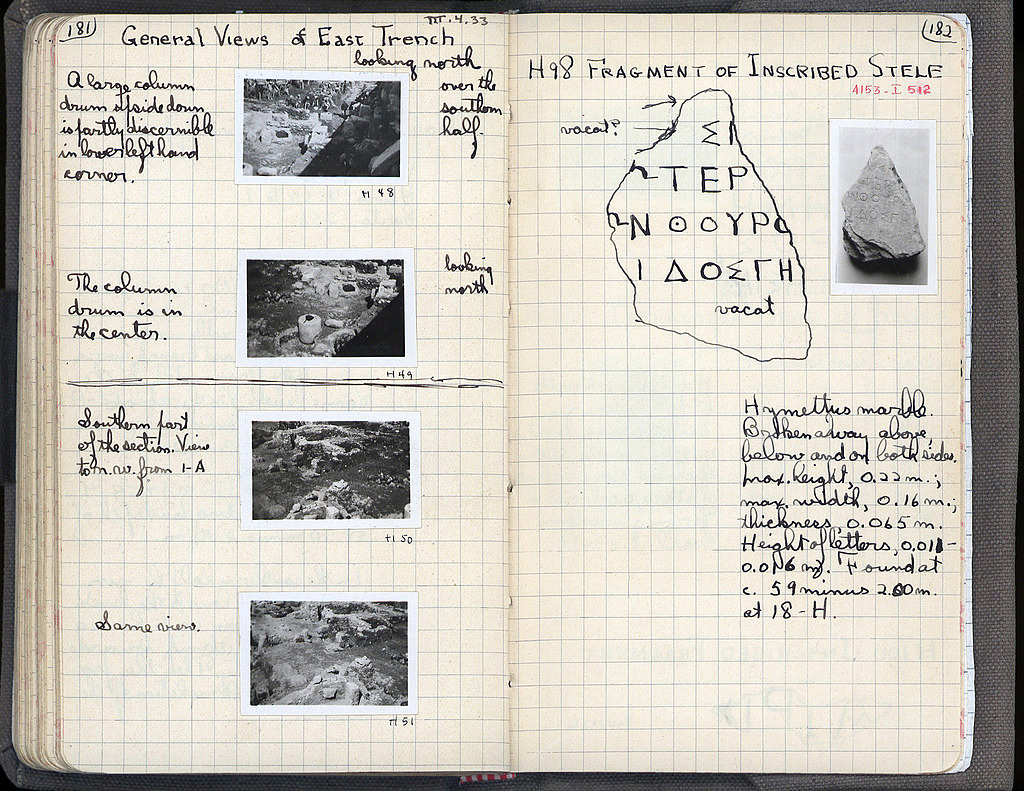 181
III.4.33
General Views of East Trench
looking north
over the
southern
half.
A large column
drum upside down
is partly discernible
in lower left hand
corner.
H 48
The column
drum is in
the center.
looking
north
H 49
Southern part
of the section. View
to n.w. from 1-A
H 50
Same view.
H 51
182
H98 FRAGMENT OF INSCRIBED STELE
4153 - I 512
vacat?
ΣΙ
ΤΕΡ
ΝΘΟΥΡΟ
ΙΔΟΣΓΗ
vacat
Hymettus marble.
Broken away above,
below and on both sides.
max. height, 0.22 m.;
max. width, 0.16 m.;
thickness, 0.065 m.
Height of letters, 0.011-
0.016 m. Found at
c. 59 minus 2.00 m.
at 18-H.